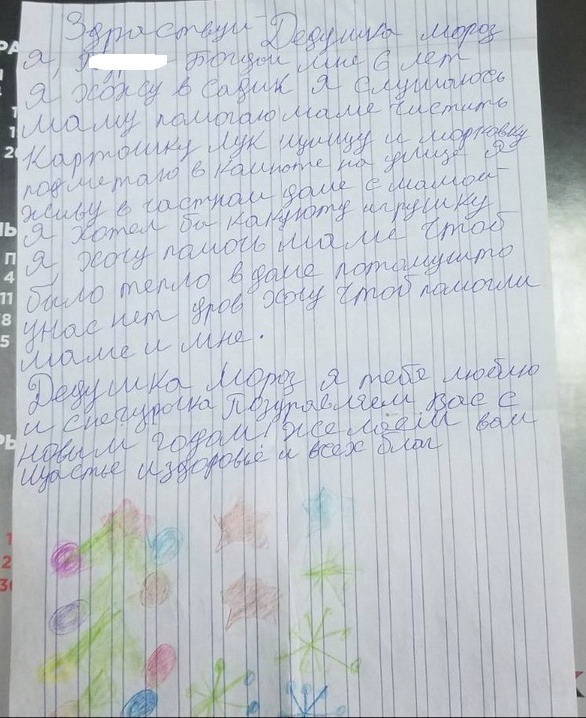 Здраствуй Дедушка Мороз
Я, Богдан мне 6 лет
Я хожу в садик Я слушаюсь
маму помогаю маме чистить
Картошку лук пиццу и морковку
подметаю в комноте на улице Я
живу в частном доме с мамой
Я хотел бы какуюто игрушку
Я, хочу помочь маме Чтоб
было тепло в доме потомушто
унас нет дров хочу Чтоб помогли
маме и мне.
Дедушка Мороз я тебя люблю
и снегурочка Поздравляем Вас с
новым годом! желаем вам
щастье издоровье и всех благ